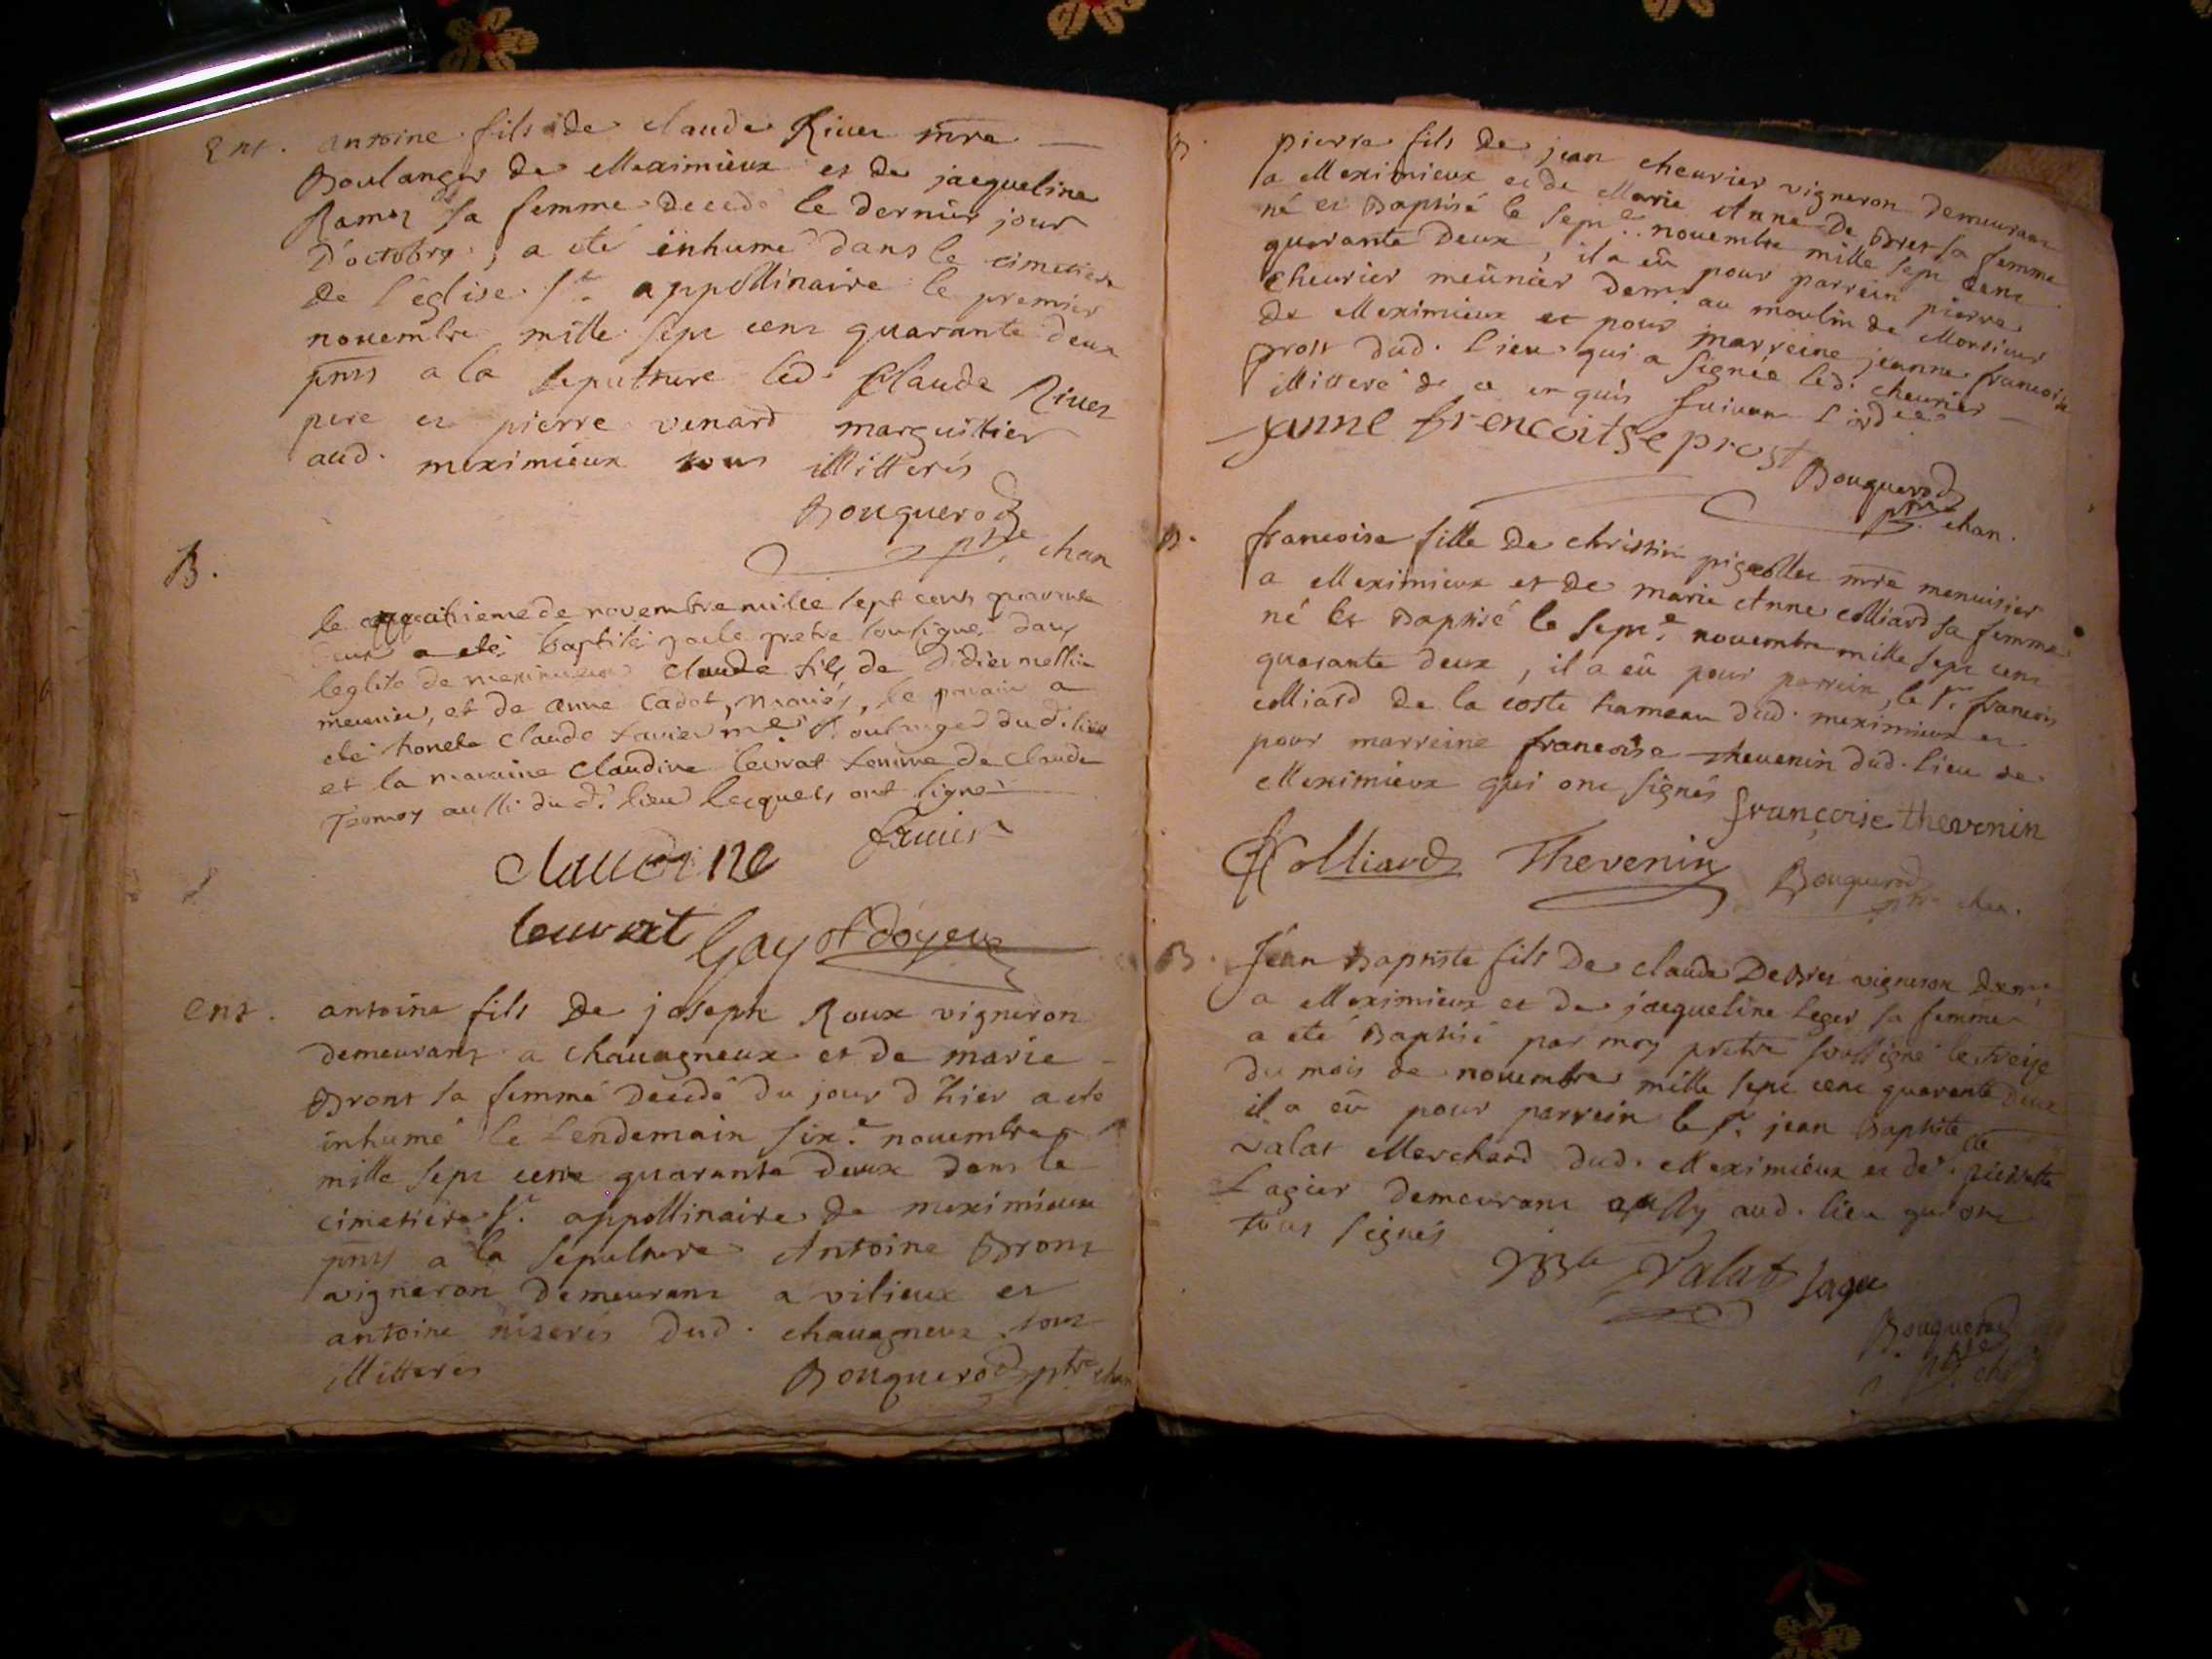 Ent. antoine fils de claude Riuer mre
Boulanger de Meximieux et de jacqueline
Ramer sa femme decedé le dernier jour
D'octobre, a eté inhumé dans le cimetiere
de l'église St. appollinaire le premier
nouembre mille sept cent quarante deux
pnts a la sepulture led. Claude Riuer
pere et pierre venard marguillier
aud. meximieux tous illitterés
Bouquerod
ptre chan
B.
le quatrieme de novembre mille sept cents quarante
deux a eté baptisé par le pretre soussigné dans
leglise de meximieux claude fils de Didier mellin
meunier, et de anne cadot, mariés, le parain a
eté honete claude xavier me boulanger du d. lieu
et la maraine Claudine levrat femme de claude
aussi du d. lieu lesquels ont signé
Claudine
leuvrat Gayot doyen
ent. antoine fils de joseph Roux vigneron
demeurant a chauagneux et de marie
Bront sa femme decedé du jour d'hier a eté
inhumé le lendemain six.e nouembre
mille sept cent quarante deux dans le
cimetiere St. appollinaire de meximieux
pnts a la sepulture Antoine Bront
vigneron demeurant a vilieux et
antoine nizerés dud. chauagneux tous
illitterés Bouquerod ptre chan
B. pierre fils de jean cheurier vigneron demeurant
a Meximieux et de Marie Anne De Bres sa femme
né et Baptisé le sept.e nouembre mille sept cent
quarante deux, il a eü pour parrein pierre
cheurier meünier demt au moulin de Monsieur
de Meximieux et pour marreine jeanne francoise
prost dud. lieu qui a signée led. cheurier
illitteré de ce enquis suivant l'ord.ce
janne frencoitse prost
Bouquerod
ptre chan.
B. francoise fille de christin pigeollet mre menuisier
a Meximieux et de marie Anne colliard sa femme
né et Baptisé le sept.e nouembre mille sept cent
quarante deux, il a eü pour parrein, le Sr. francois
colliard de la coste hameau dud. meximieux et
pour marreine francoise Theuenin dud. lieu de
Meximieux qui ont signés françoise thevenin
Colliard Thevenin Bouquerod
ptre chan.
B. Jean Baptiste fils de claude DeBres vigneron demt
a Meximieux et de jacqueline Leger sa femme
a eté Baptisé par moy pretre soussigné le treize
du mois de nouembre mille sept cent quarante deux
il a eü pour parrein le Sr. jean Baptiste
valat Marchand dud. Meximieux et de.lle pierrette
Lagier demeurant aussy aud. lieu qui ont
tous signés
Valat Lagie
Bouquerod
ptre ch